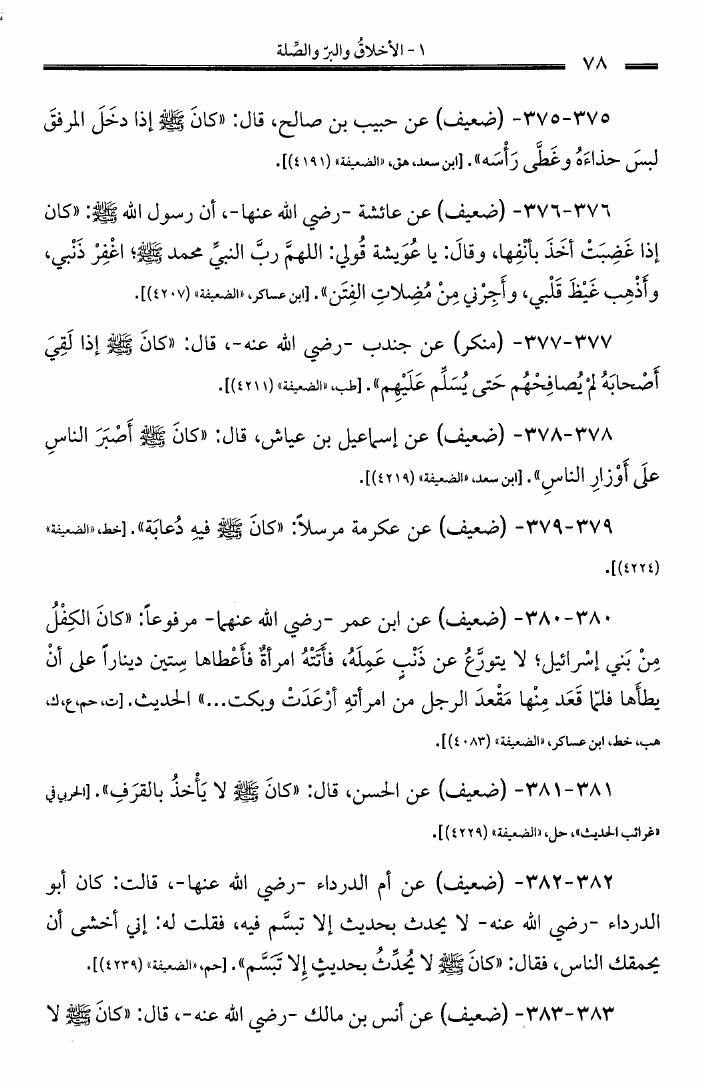 ١- الأخلاقُ والبرّ والصِّلة
٧٨
٣٧٥-٣٧٥- (ضعيف) عن حبيب بن صالح، قال: «كانَ ﷺ إذا دخَلَ المرفقَ
لبسَ حذاءَهُ وغَطَّى رَأْسَه». [ابن سعد، هق، «الضعيفة» (٤١٩١)].
٣٧٦-٣٧٦- (ضعيف) عن عائشة -رضي الله عنها-، أن رسول الله ﷺ: «كان
إذا غَضِبَتْ أخَذَ بأنْفِها، وقالَ: يا عُوَيشة قُولي: اللهمَّ ربَّ النبيِّ محمد ﷺ؛ اغْفِرْ ذَنْبي،
وأَذْهِب غَيْظَ قَلْبي، وأَجِرْني مِنْ مُضِلاتِ الفِتَن». [ابن عساكر، «الضعيفة» (٤٢٠٧)].
٣٧٧-٣٧٧- (منكر) عن جندب -رضي الله عنه-، قال: «كانَ ﷺ إذا لَقِيَ
أَصْحابَهُ لمْ يُصافِحْهُم حَتى يُسَلِّم عَلَيْهِم». [طب، «الضعيفة» (٤٢١١)].
٣٧٨-٣٧٨- (ضعيف) عن إسماعيل بن عياش، قال: «كانَ ﷺ أَصْبَرَ الناسِ
علَى أَوْزارِ الناسِ». [ابن سعد، «الضعيفة» (٤٢١٩)].
٣٧٩-٣٧٩- (ضعيف) عن عكرمة مرسلاً: «كانَ ﷺ فيهِ دُعابَة». [خط، «الضعيفة»
(٤٢٢٤)].
٣٨٠-٣٨٠- (ضعيف) عن ابن عمر -رضي الله عنهما- مرفوعاً: «كانَ الكِفْلُ
مِنْ بَني إسْرائيل؛ لا يتورَّعُ عن ذَنْبٍ عَمِلَهُ، فأَتَتْهُ امرأةٌ فأَعْطاها سِتين ديناراً على أنْ
يطأَها فلمّا قَعَد مِنْها مَقْعدَ الرجل من امرأتهِ أرْعَدَتْ وبكت...» الحديث. [ت، حم، ع، ك،
هب، خط، ابن عساكر، «الضعيفة» (٤٠٨٣)].
٣٨١-٣٨١- (ضعيف) عن الحسن، قال: «كانَ ﷺ لا يَأْخذُ بالقرَفِ». [الحربي في
«غرائب الحديث»، حل، «الضعيفة» (٤٢٢٩)].
٣٨٢-٣٨٢- (ضعيف) عن أم الدرداء -رضي الله عنها-، قالت: كان أبو
الدرداء -رضي الله عنه- لا يحدث بحديث إلا تبسَّم فيه، فقلت له: إني أخشى أن
يحمقك الناس، فقال: «كانَ ﷺ لا يُحدِّثُ بحديثٍ إِلا تَبَسَّم». [حم، «الضعيفة» (٤٢٣٩)].
٣٨٣-٣٨٣- (ضعيف) عن أنس بن مالك -رضي الله عنه-، قال: «كانَ ﷺ لا